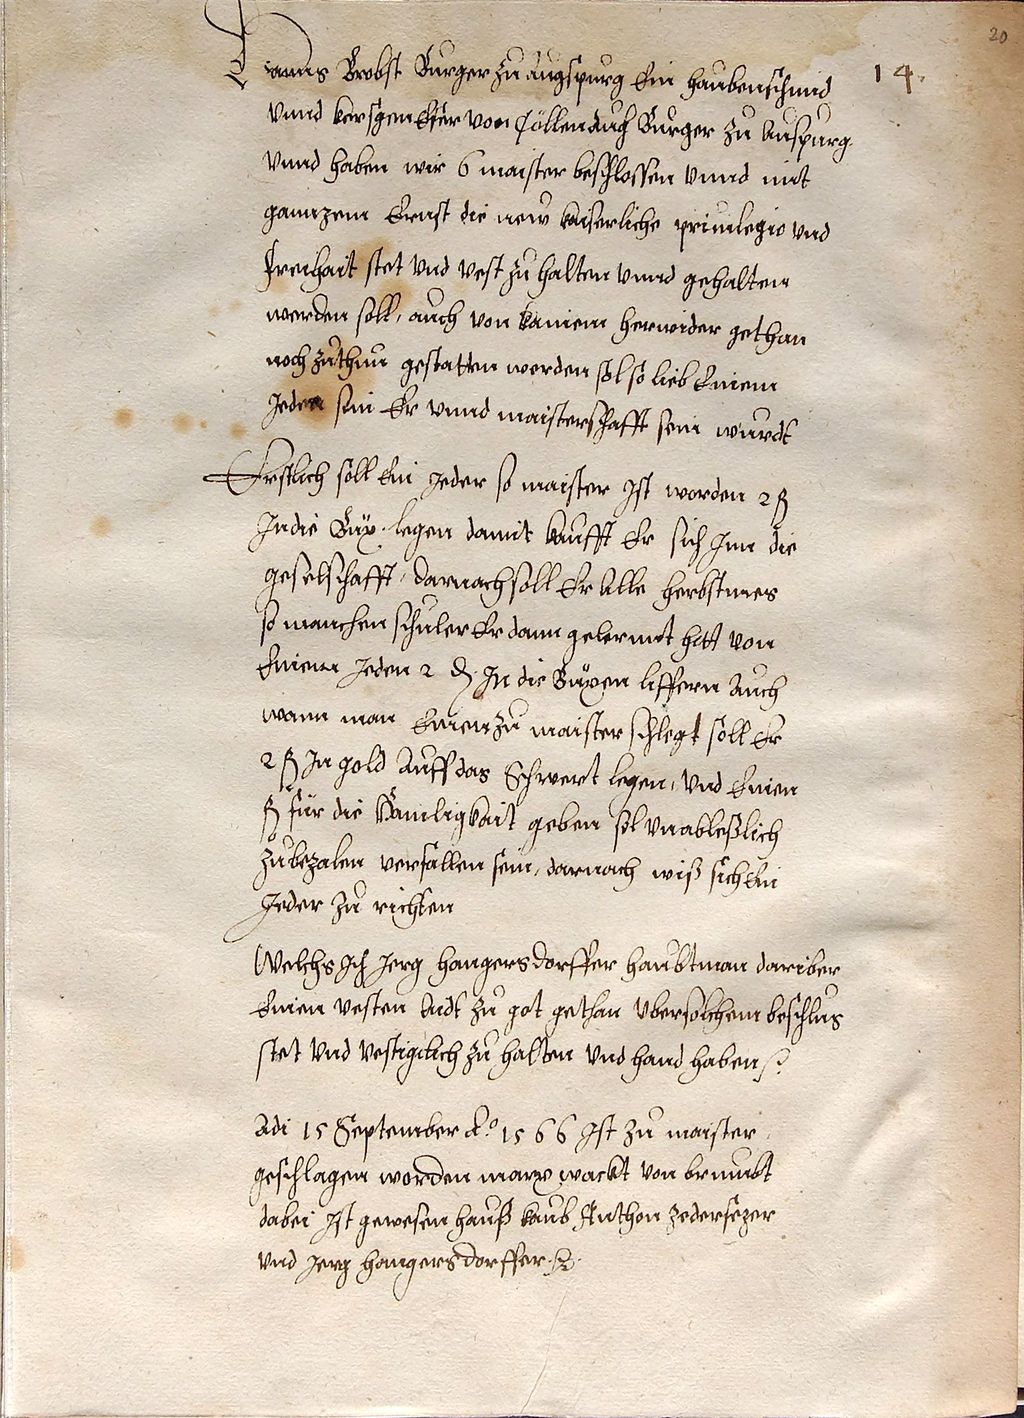 20
14.
Hanns Brobst Burger zu Augspurg Ein haubenschmid
Vnnd kersgen Eser von Cöllen auch Burger zu Auspurg.
Vnnd haben wir 6 maister beschlossen Vnnd mit
gannzem Ernst die new kaiserliche priuilegio vnd
freihait stet vnd vest zu halten vnnd gehalten
werden soll, auch von kainem herwider gethan
noch zuthun gestatten werden sol so lieb Einem
Jeden sein Er vnnd maisterschafft sein wurdt
Erstlich soll Ein Jeder so maister Ist worden 2 ß
In die Bux legen damit kaufft Er sich Inn die
geselschafft, darnach soll Er Alle herbstmes
so manchen schuler Er dann gelernnt hatt von
Einem Jeden 2 ₰ In die Buxen liffern Auch
wann man Einen zu maister schlegt soll Er
2 ß In gold Auff das Schwert legen, vnd Einen
ß für die Hainligkait geben sol vnableßlich
zubezalen verfallen sein, darnach wiß sich Ein
Jeder zu richten
Welchs Ich Jerg hangersdorffer haubtman dariber
Einen vesten Aidt zu got gethan vber solchem beschlus
stet vnd vestigilich zu halten vnd hand haben
Adi 15 September Ao 1566 Ist zu maister
geschlagen worden marx wackt von
dabei Ist gewesen hanß kaub Anthon zedersezer
vnd Jerg hangersdorffer